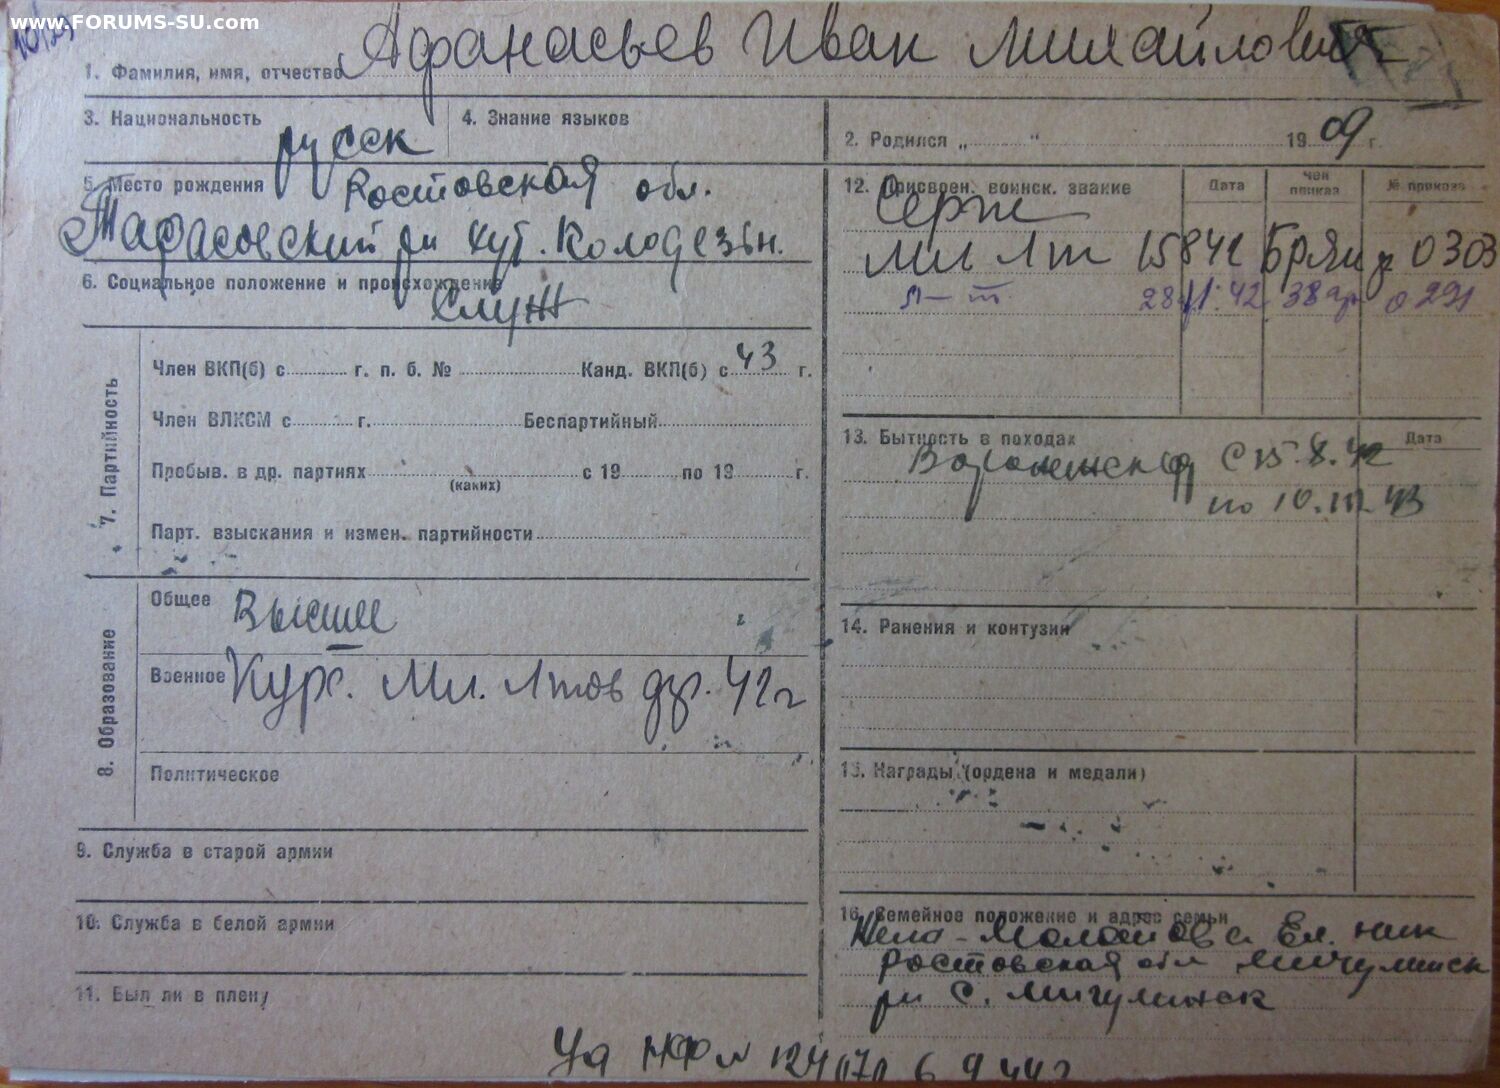 www.FORUMS-SU.com
1. Фамилия, имя, отчество Афанасьев Иван Михайлович
3. Национальность русск
4. Знание языков
2. Родился „ " 1909 г.
5. Место рождения Ростовская обл.
Тарасовский рн хут. Колодезьн.
6. Социальное положение и происхождение
Служ
7. Партийность
Член ВКП(б) с г. п. б. № Канд. ВКП(б) с 43 г.
Член ВЛКСМ с г. Беспартийный
Пребыв. в др. партиях с 19 по 19 г.
(каких)
Парт. взыскания и измен. партийности
8. Образование
Общее Высшее
Военное Курс. Мл. Лтов 42 г
Политическое
9. Служба в старой армии
10. Служба в белой армии
11. Был ли в плену
12. Присвоен. воинск. звание Дата Чей приказ № приказа
Серж
Мл Лт 15 8 42 0303
Л-т 42 38 ар 0291
13. Бытность в походах Дата
Воронежск ф С 15.8.42
по 10.III 43
14. Ранения и контузии
15. Награды (ордена и медали)
16. Семейное положение и адрес семьи
Жена - Ел. ник
Ростовская обл Мигулинск
рн с. Мигулинск